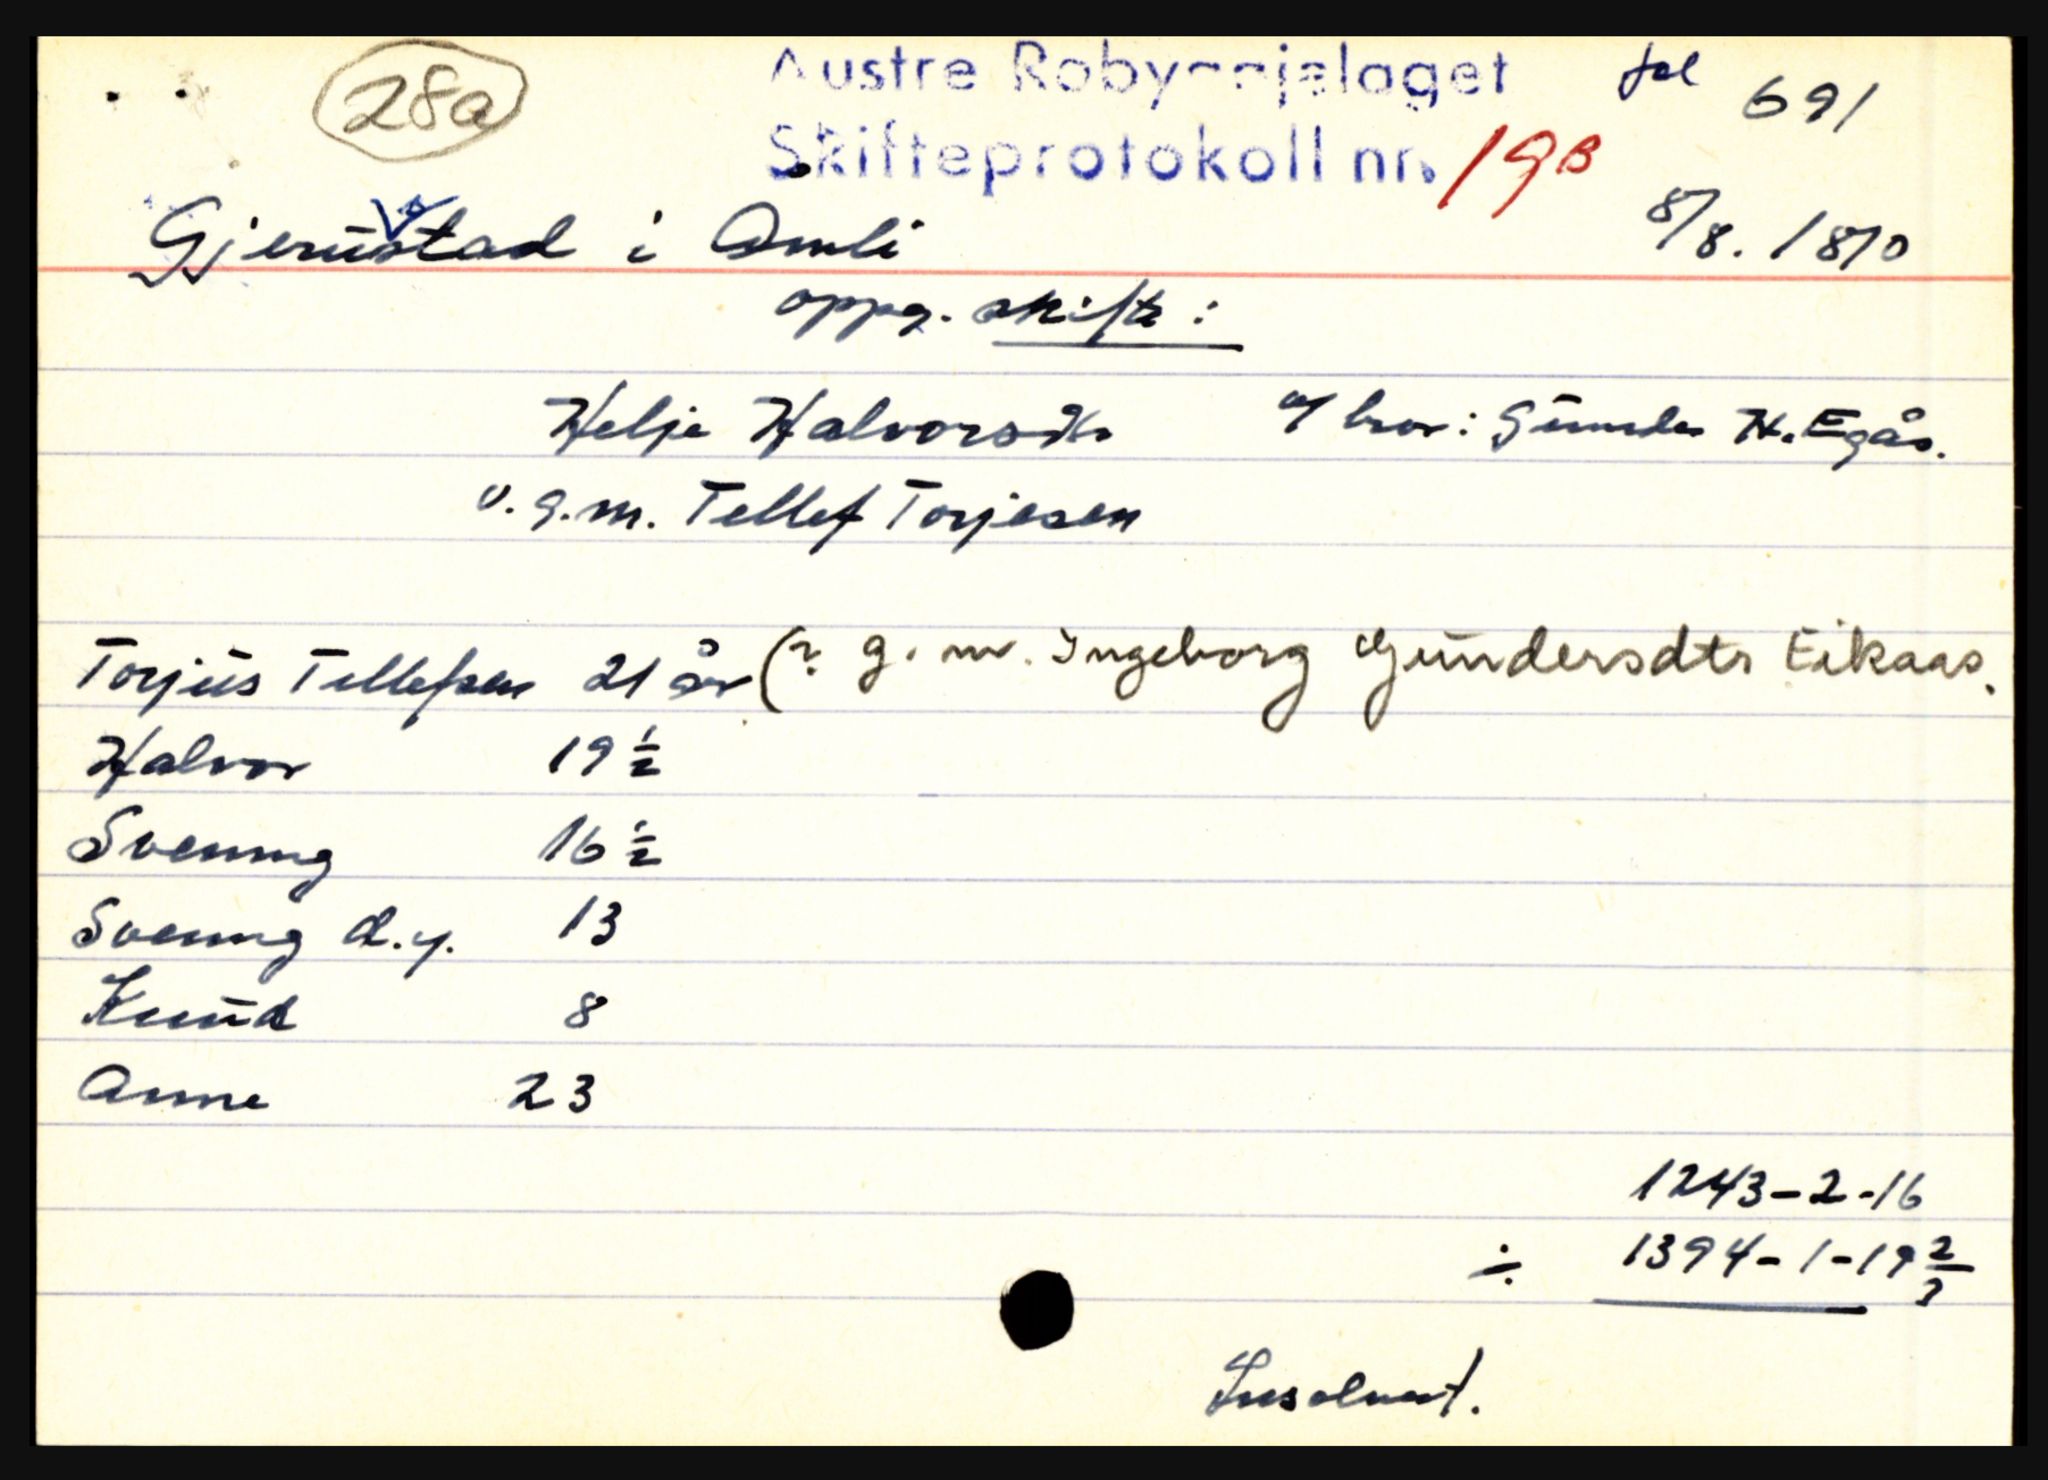 28a
Austre Robyggjelaget fol 691
Skifteprotokoll nr. 19B
Gjerustad i Amli 8/8. 1810
oppg. skifte:
Helje Halvorsdtr a/ bror: Gunder H. Egås.
v. g.m. Tellef Torjesen
Torjus Tellefsen 21 år (? g. m. Ingeborg Gundersdtr Eikaas.
Halvor 19 1/2
Svenung 16 1/2
Svenung d.y. 13
Knud 8
Anne 23
1243-2-16
÷ 1394-1-19 2/3
Insolvent.